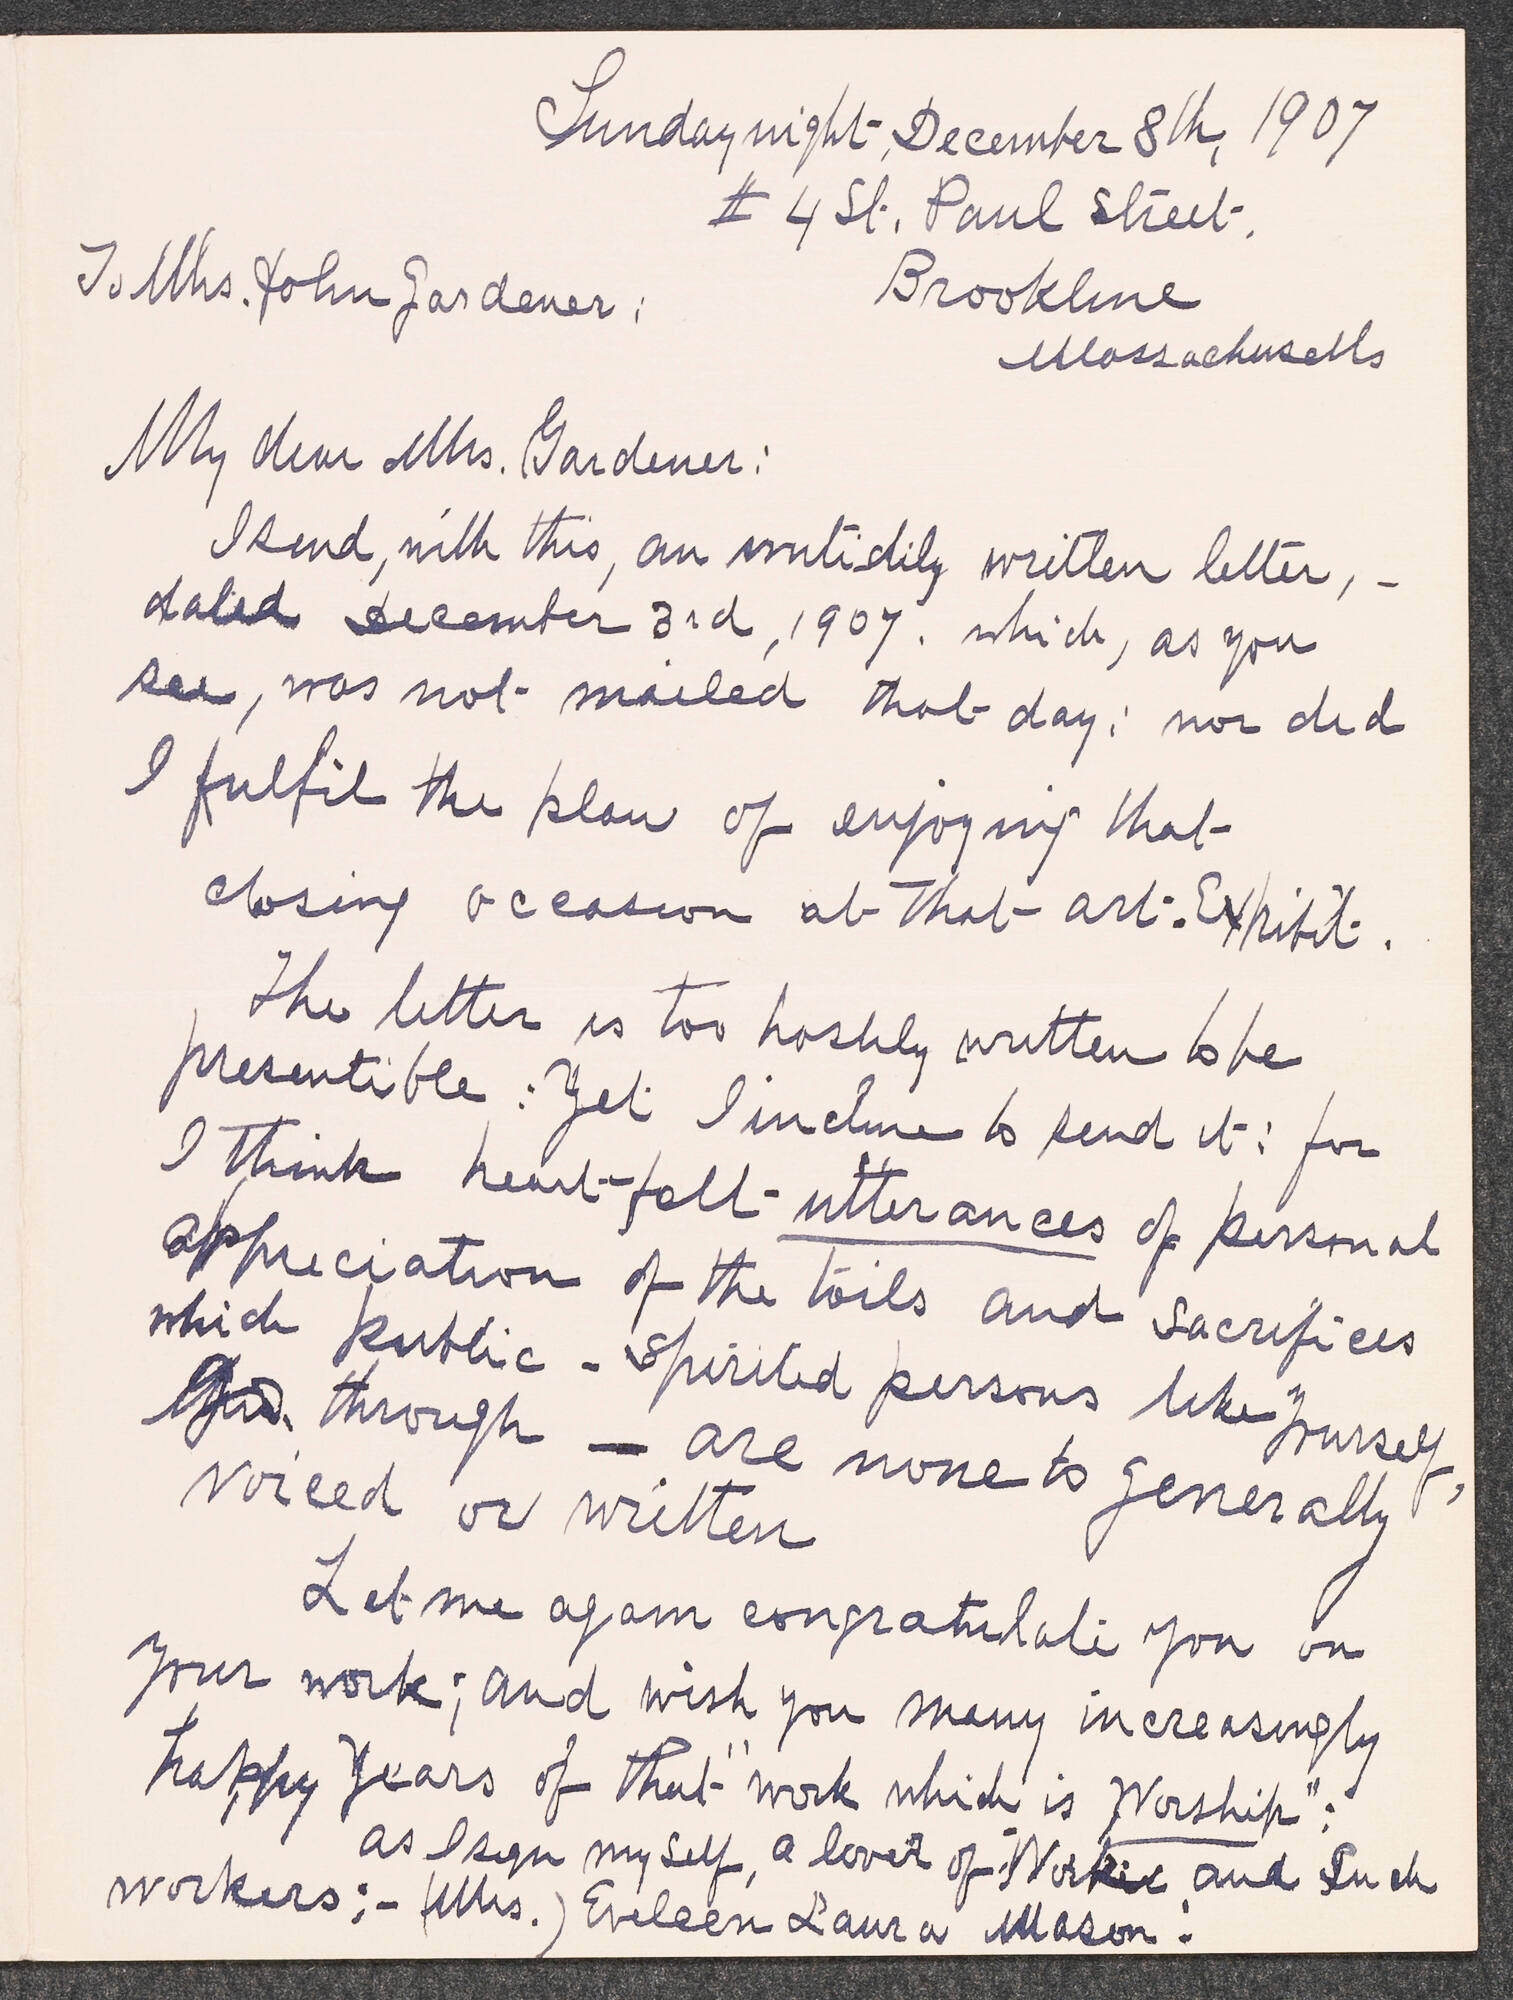 Sunday night, December 8th, 1907
# 4 St. Paul Street.
Brookline
Massachusetts
To Mrs. John Gardener:
My dear Mrs. Gardener:
I send, with this, an untidily written letter, -
dated December 3rd, 1907. which, as you
see, was not mailed that day: nor did
I fulfil the plan of enjoying that
closing occasion at that art. Exhibit.
The letter is too hastily written to be
presentible: Yet I incline to send it: for
I think heart-felt utterances of personal
appreciation of the toils and sacrifices
which public-spirited persons like Yourself,
through — are none to generally
voiced or written
Let me again congratulate you on
your work; and wish you many increasingly
happy Years of that "work which is Worship":
as I sign myself, a lover of and Such
workers;- (Mrs.) Eveleen Laura Mason.